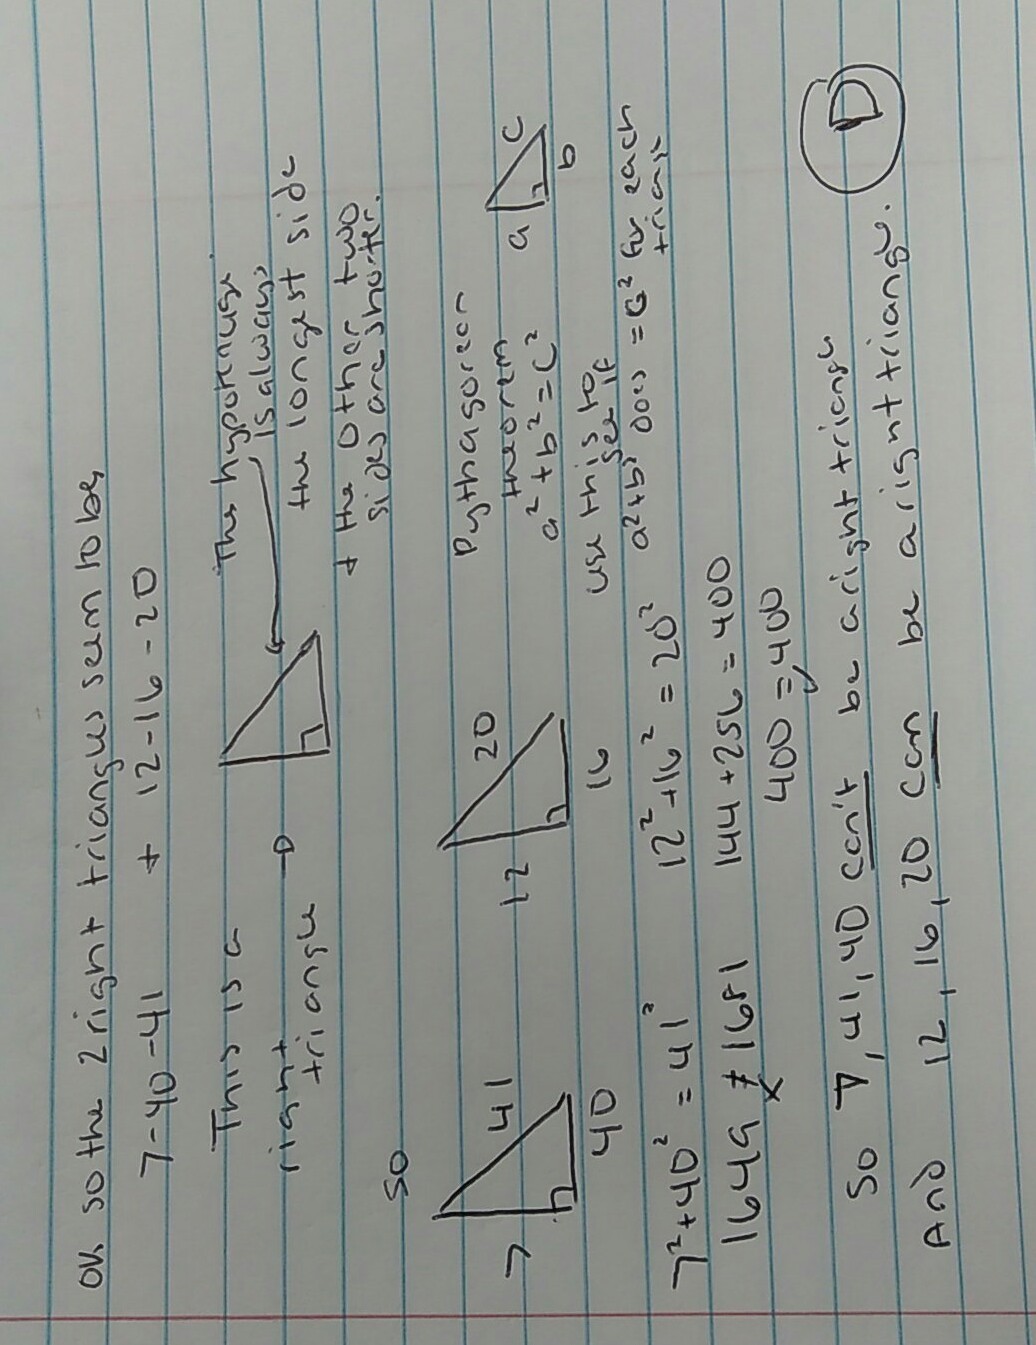 ok so the 2 right triangles seem to be
7-40-41 + 12-16-20
This is a
right
triangle
The hypotenuse
is always
the longest side
+ the other two
sides are shorter.
so
7
41
40
12
20
16
Pythagorean
theorem
a² + b² = c²
a
c
b
use this to
see if
a²+b² does = c² for each
triangle
7²+40² = 41²
1649 ≠ 1681
x
12²+16² = 20²
144 + 256 = 400
400 = 400
✓
so 7, 41, 40 can't be a right triangle
And 12, 16, 20 can be a right triangle.
D